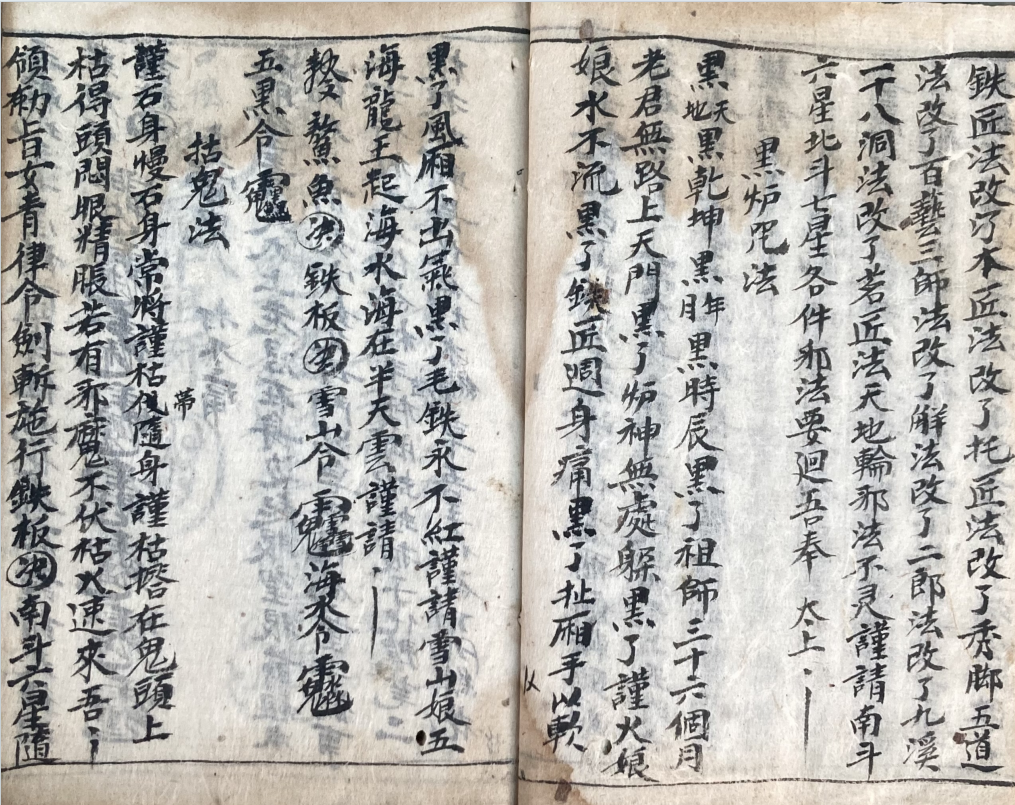 鉄匠法改了本匠法改了托匠法改了秀脚五道
法改了百藝三師法改了解法改了二郎法改了九溪
二十八洞法改了若匠法天地輪邪法不灵謹請南斗
六星北斗七星各件邪法要迴吾奉 太上
黑炉咒法
黑天地黑乾坤黑年月黑時辰黑了祖師三十六個月
老君無路上天門黑了炉神無處躲黑了謹火娘
娘水不流黑了鉄匠週身痛黑了扯厢手以軟
黑了風厢不出氣黑了毛鉄永不紅謹請雪山娘五
海龍王起海水海在半天雲謹請
鰲魚 鉄板 雪山令 海水令
五黑令
拈鬼法
謹石身慢石身常將謹枯帶隨身謹枯搭在鬼頭上
枯得頭悶眼精脹若有邪魔不伏枯火速來吾
領勅旨女青律令劍斬施行鉄板 南斗六星隨